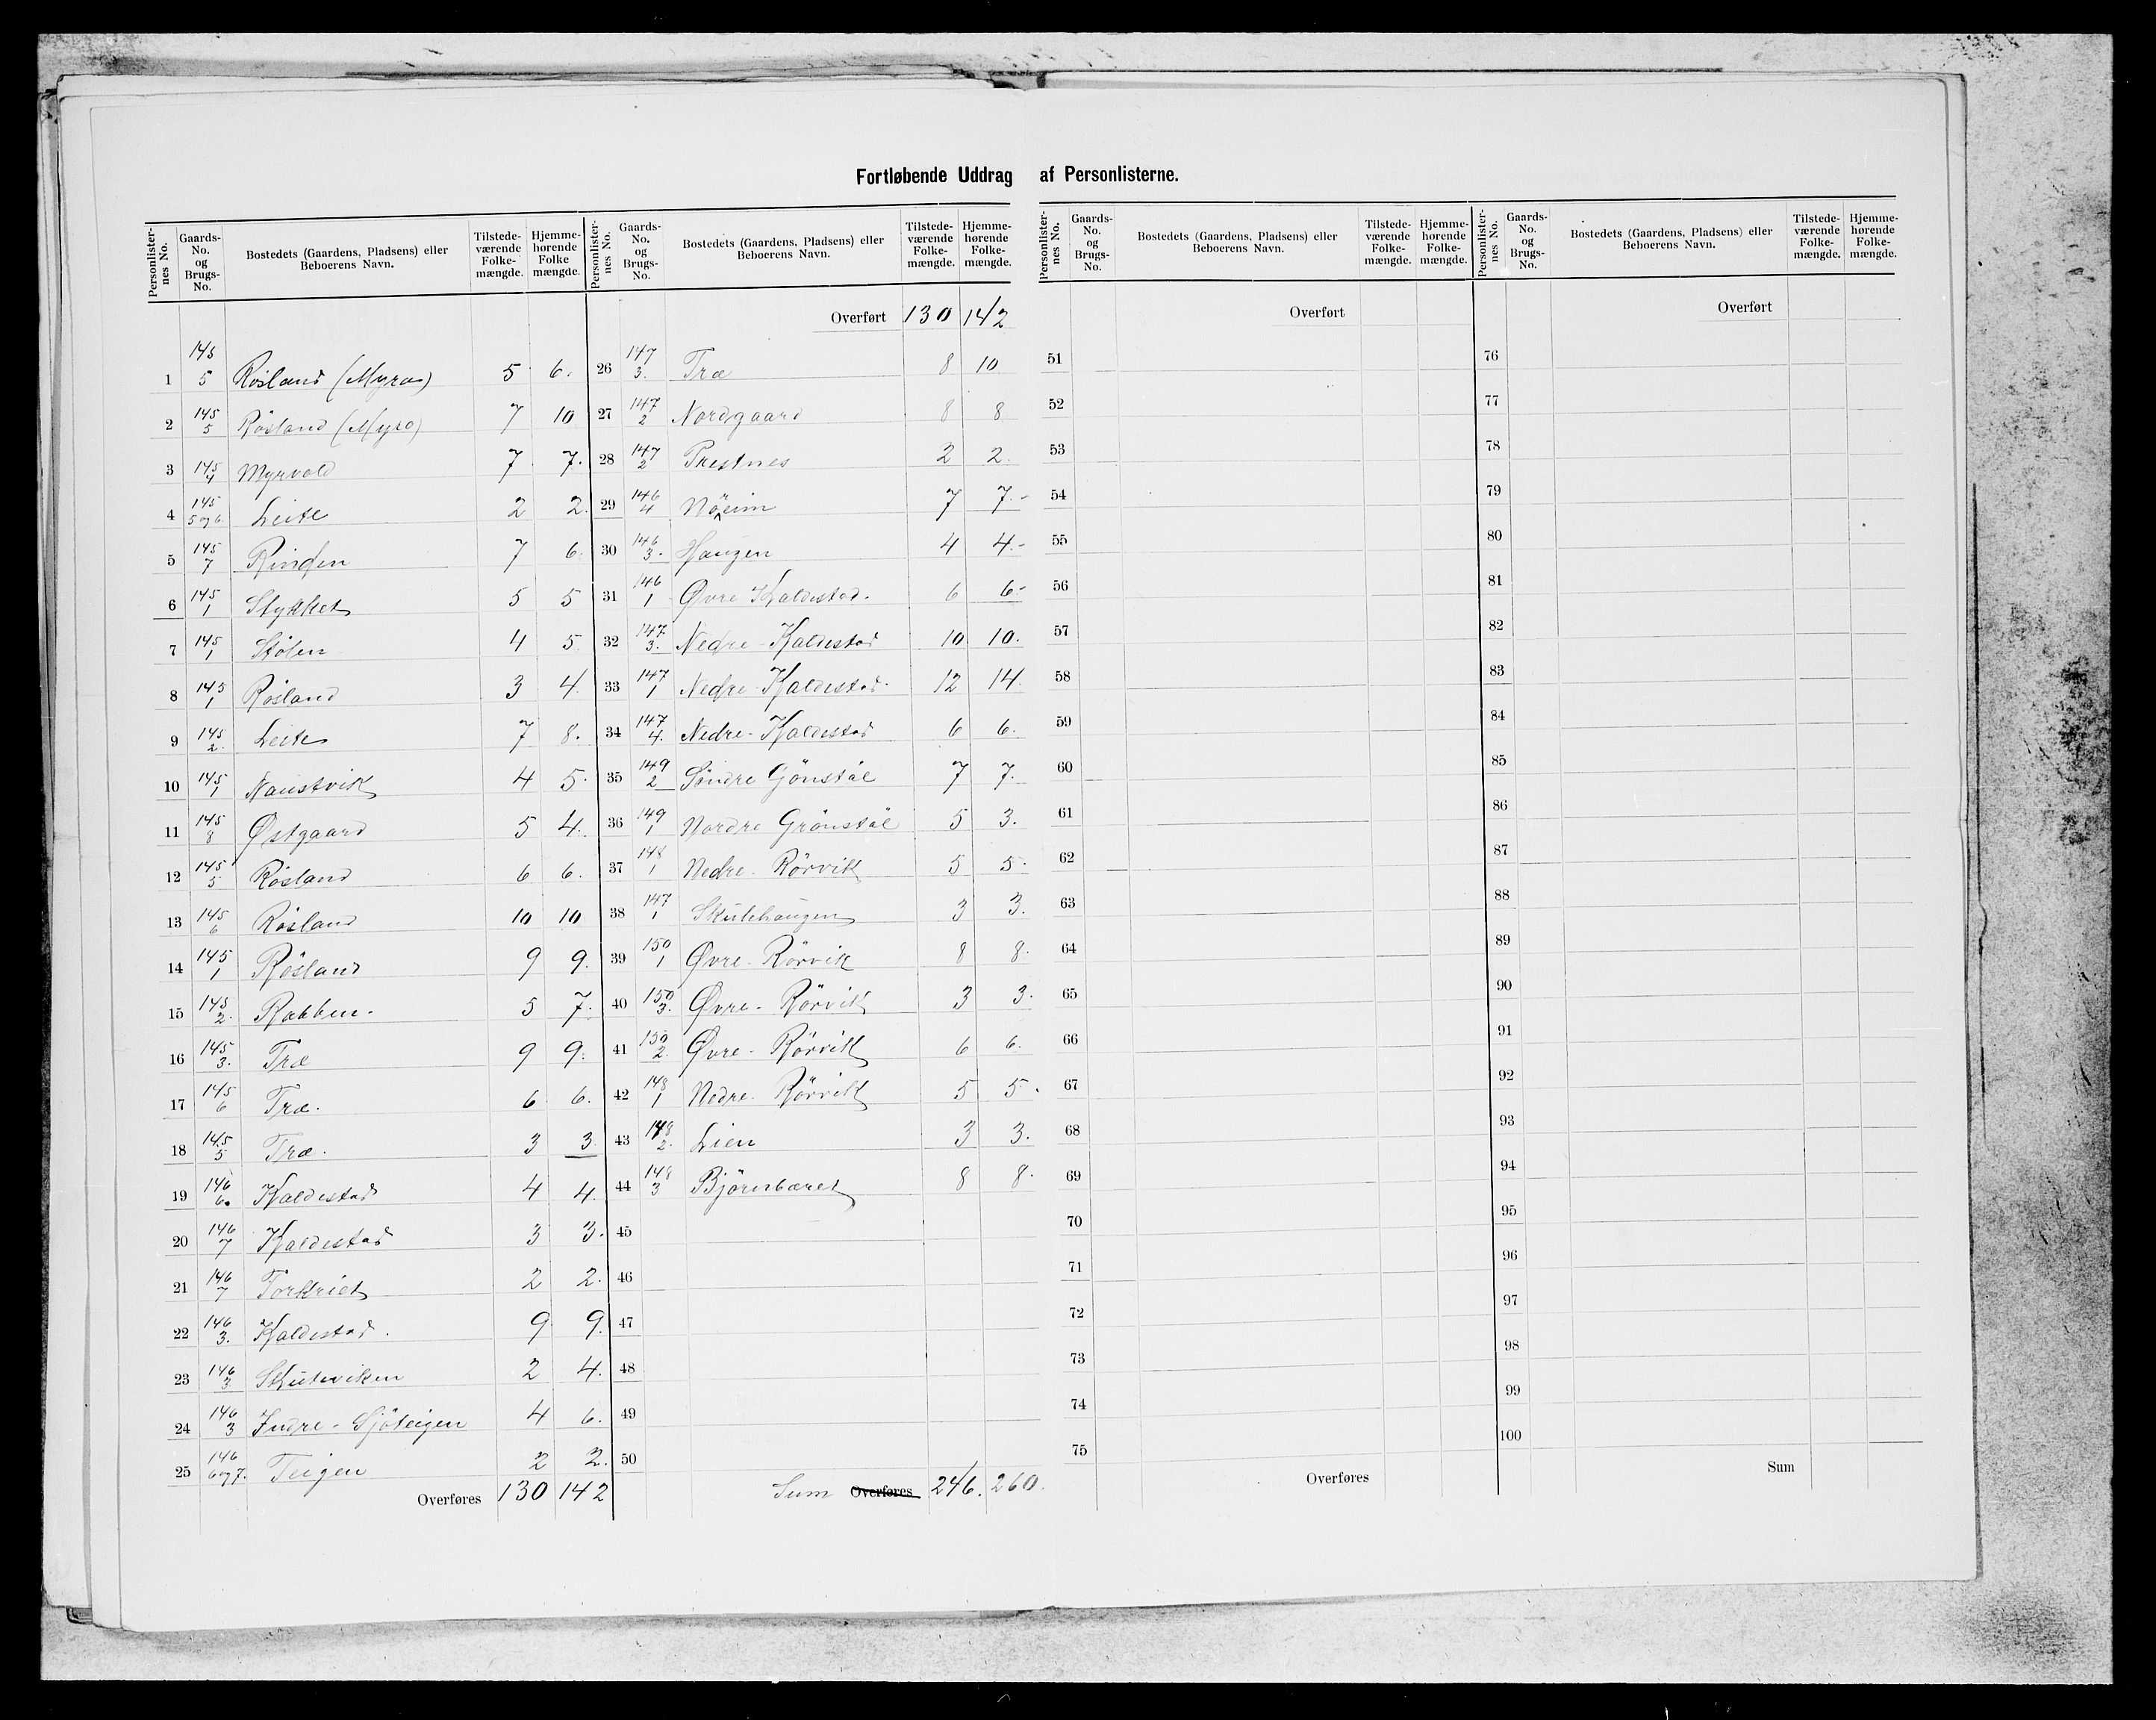 Fortløbende Uddrag af Personlisterne.
Personlister-nes No. Gaards-No. og Brugs-No. Bostedets (Gaardens, Pladsens) eller Beboerens Navn. Tilstede-værende Folke-mængde. Hjemme-hørende Folke mængde.
1 145/5 Røsland (Myra) 5 6.
2 145/5 Røsland (Myro) 7 10
3 145/4 Myrvold 7 7.
4 145/5og6 Leite 2 2.
5 145/7 Rinden 7 6.
6 145/1 Stykket 5 5
7 145/1 Stölen 4 5.
8 145/1 Røsland 3 4.
9 145/2. Leite 7 8.
10 145/1 Naustvik 4 5.
11 145/8 Østgaard 5 4.
12 145/5 Røsland 6 6.
13 145/6 Røsland 10 10
14 145/1 Røsland 9 9.
15 145/2. Rabben. 5 7.
16 145/3. Træ 9 9.
17 145/6 Træ. 6 6.
18 145/5 Træ. 3 3
19 146/6. Kaldestad 4 4.
20 146/7 Kaldestad 3 3.
21 146/7 2 2.
22 146/3. Kaldestad. 9 9.
23 146/3 Skuteviken 2 4.
24 146/3 Indre-Sjöteigen 4 6.
25 146/6og7. Teigen 2 2.
Overføres 130 142
Personlister-nes No. Gaards-No. og Brugs-No. Bostedets (Gaardens, Pladsens) eller Beboerens Navn. Tilstede-værende Folke-mængde. Hjemme-hørende Folke-mængde.
Overført 130 142
26 147/3. Træ 8 10
27 147/2 Nordgaard 8 8
28 147/2 Prestnes 2 2.
29 146/4 Nöeim 7 7.-
30 146/3. Haugen 4 4.-
31 146/1 Øvre Kaldestad. 6 6-
32 147/3. Nedre-Kaldestad 10 10.
33 147/1 Nedre-Kaldestad. 12 14.
34 147/4. Nedre-Kaldestad 6 6.
35 149/2 Söndre Gönstöl 7 7.
36 149/1 Nordre Grönstöl 5 3.
37 148/1 Nedre-Rörvik 5 5.
38 147/1 Skulehaugen 3 3.
39 150/1 Øvre-Rörvik 8 8.
40 150/3. Øvre-Rörvik 3 3.
41 150/2. Øvre-Rörvik 6 6.
42 148/1 Nedre-Rörvik 5 5.
43 148/2. Lien 3 3.
44 148/3 Björnbæret 8 8.
45
46
47
48
49
50
Sum Overføres 246. 260.
Personlister-nes No. Gaards-No. og Brugs-No. Bostedets (Gaardens, Pladsens) eller Beboerens Navn. Tilstede-værende Folke-mængde. Hjemme-hørende Folke-mængde.
Overført
51
52
53
54
55
56
57
58
59
60
61
62
63
64
65
66
67
68
69
70
71
72
73
74
75
Overføres
Personlister-nes No. Gaards-No. og Brugs-No. Bostedets (Gaardens, Pladsens) eller Beboerens Navn. Tilstede-værende Folke-mængde. Hjemme-hørende Folke-mængde.
Overført
76
77
78
79
80
81
82
83
84
85
86
87
88
89
90
91
92
93
94
95
96
97
98
99
100
Sum